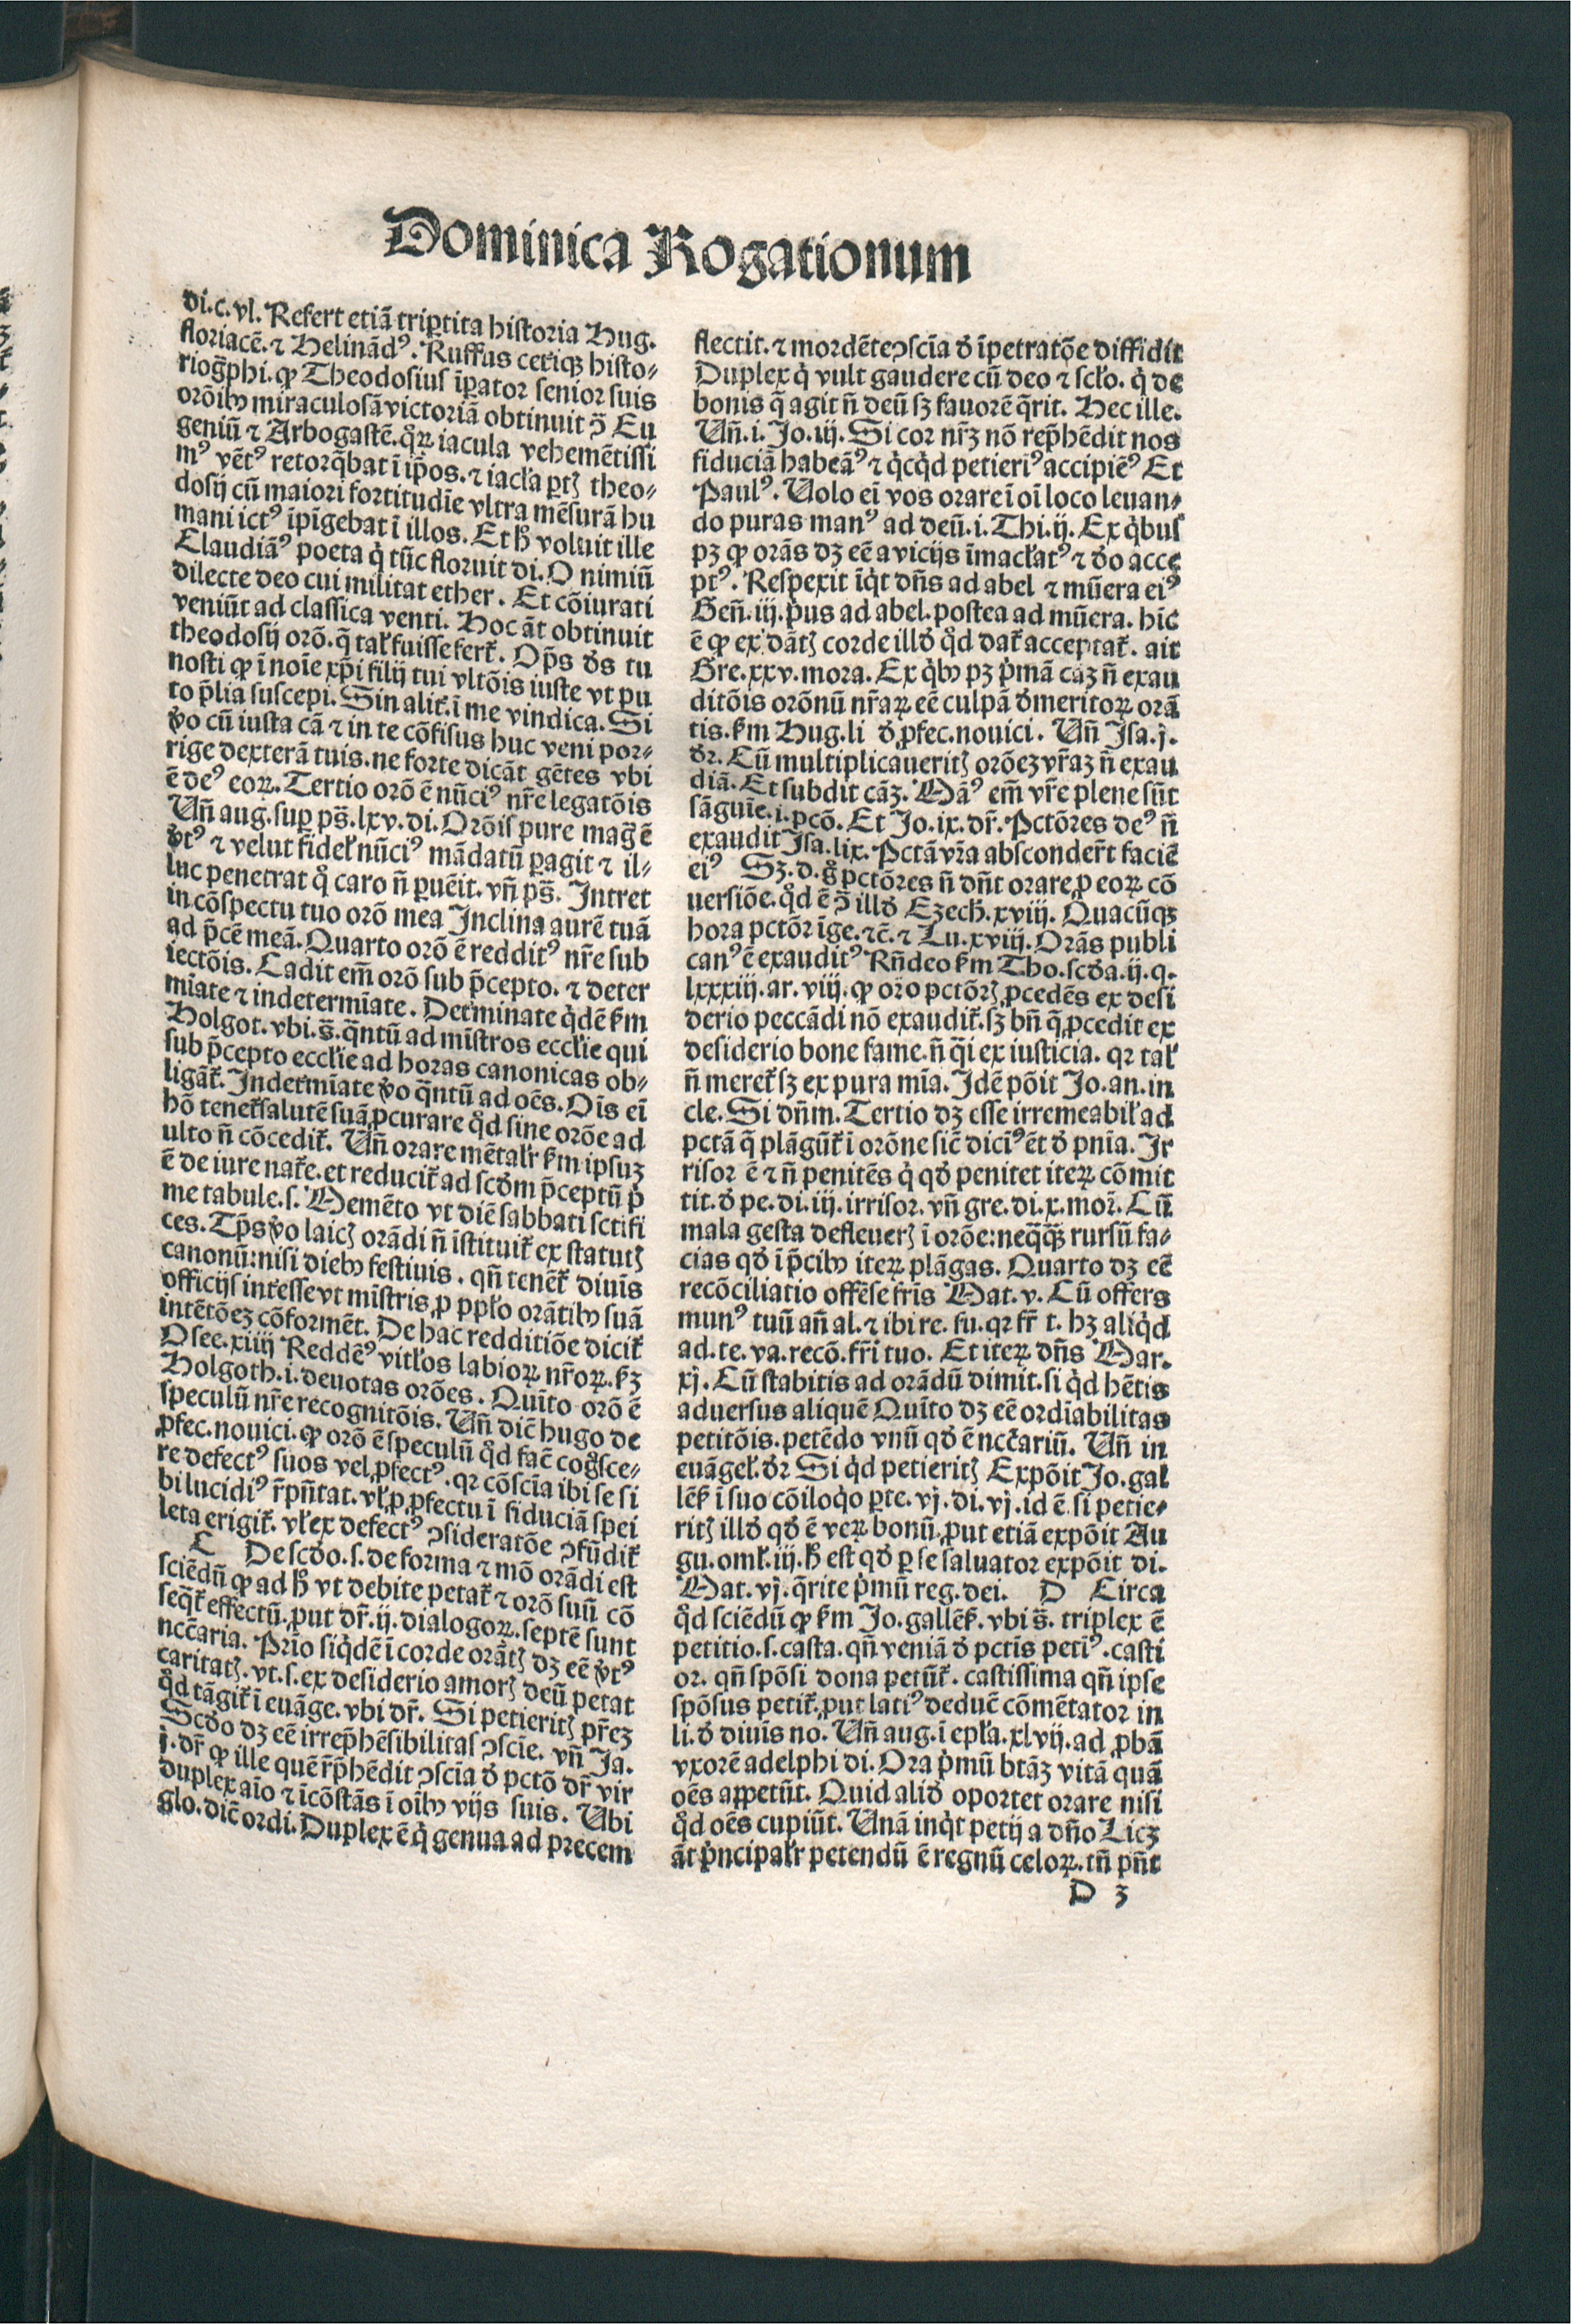 Dominica Rogationum
di.c.vl. Refert etiã tripertita historia Hug.
floriacẽ.⁊ Helinãdꝰ. Ruffus ceriqꝫ histo⸗
riog̃phi.ꝙ Theodosius ĩpator senior suis
orõibꝰ miraculosã victoriã obtinuit ↄ̃ Eu
geniũ ⁊ Arbogastẽ.qͦꝝ iacula vehemẽtissi
mꝰ vẽtꝰ retorq̃bat ĩ ip̃os.⁊ iacl̃a ꝑtꝭ theo⸗
dosij cũ maiori fortitudĩe vltra mẽsurã hu
mani ictꝰ ĩpĩgebat ĩ illos. Et hͦ voluit ille
Claudiãꝰ poeta q̇ tũc floruit di. O nimiũ
dilecte deo cui militat ether. Et cõiurati
veniũt ad classica venti. Hoc ãt obtinuit
theodosij orõ.q̃ tal̃ fuisse fert̃. Op̃s ds̃ tu
nosti ꝙ ĩ noĩe xp̃i filij tui vltõis iuste vt pu
to p̃lia suscepi. Sin alit̃.ĩ me vindica. Si
ṽo cũ iusta cã ⁊ in te cõfisus huc veni por⸗
rige dexterã tuis.ne forte dicãt gẽtes vbi
ẽ deꝰ eoꝝ. Tertio orõ ẽ nũciꝰ nr̃e legatõis
Uñ aug.suꝑ ps̃.lxv.di. Orõis pure mag̃ ẽ
ṽtꝰ ⁊ velut fidel̃ nũciꝰ mãdatũ ꝑagit ⁊ il⸗
luc penetrat qͦ caro ñ puẽit. vñ ps̃. Intret
in cõspectu tuo orõ mea Inclina aurẽ tuã
ad p̃cẽ meã. Quarto orõ ẽ redditꝰ nr̃e sub
iectõis. Cadit em̃ orõ sub p̃cepto.⁊ deter
mĩate ⁊ indetermĩate. Det̃minate q̇dẽ ẜm
Holgot.vbi.s̃.q̃ntũ ad mĩstros eccl̃ie qui
sub p̃cepto eccl̃ie ad horas canonicas ob⸗
ligãt̃. Indet̃mĩate ṽo q̃ntũ ad oẽs. Oĩs eĩ
hõ tenet̃ salutẽ suã ꝓcurare qͦd sine orõe ad
ulto ñ cõcedit̃. Uñ orare mẽtal̃r ẜm ipsuꝫ
ẽ de iure nat̃e.et reducit̃ ad scd̃m p̃ceptũ p̃
me tabule.s. Memẽto vt diẽ sabbati sctifi
ces. Tp̃s ṽo laicꝭ orãdi ñ ĩstituit̃ ex statutꝭ
canonũ:nisi diebꝰ festiuis. qñ tenẽt̃ diuĩs
officijs int̃esse vt mĩstris,ꝓ pp̃lo orãtibꝰ suã
intẽtõeꝫ cõformẽt. De hac redditiõe dicit̃
Osee.xiiij Reddẽꝰ vitl̃os labioꝝ nr̃oꝝ.ẜꝫ
Holgoth.i.deuotas orões. Quĩto orõ ẽ
speculũ nr̃e recognitõis. Uñ dic̃ hugo de
ꝓfec.nouici.ꝙ orõ ẽ speculũ qͦd fac̃ cogͦsce⸗
re defectꝰ suos vel ꝓfectꝰ.qꝛ cõscĩa ibi se si
bi lucidiꝰ r̃pñtat.vl̃ ꝓ ꝓfectu ĩ fiduciã spei
leta erigit̃.vl̃ ex defectꝰ ↄsideratõe ↄfũdit̃
C De scd̃o.s.de forma ⁊ mõ orãdi est
sciẽdũ ꝙ ad hͦ vt debite petat̃ ⁊ orõ suũ cõ
seq̃t̃ effectũ.ꝓut dr̃.ij.dialogoꝝ.septẽ sunt
ncc̃aria. Prĩo siq̇dẽ ĩ corde orãtꝭ dꝫ eẽ ṽtꝰ
caritatꝭ.vt.s.ex desiderio amorꝭ deũ petat
qͦd tãgit̃ ĩ euãge.vbi dr̃. Si petieritꝭ pr̃eꝫ
Scd̃o dꝫ eẽ irrep̃hẽsibilitas ↄscĩe. vñ Ja.
j.dr̃ ꝙ ille quẽ r̃p̃hẽdit ↄscĩa d̃ pctõ dr̃ vir
duplex aĩo ⁊ ĩcõstãs ĩ oĩbꝰ vijs suis. Ubi
glo.dic̃ ordi. Duplex ẽ q̇ genua ad precem
flectit.⁊ mordẽte ↄscĩa d̃ ĩpetratõe diffidit
Duplex q̇ vult gaudere cũ deo ⁊ scl̃o. q̇ de
bonis q̃ agit ñ deũ sꝫ fauorẽ q̃rit. Hec ille.
Uñ.i.Jo.iij. Si cor nr̃ꝫ nõ rep̃hẽdit nos
fiduciã habeãꝰ ⁊ q̇cq̇d petieriꝰ accipiẽꝰ Et
Paulꝰ. Uolo eĩ vos orare ĩ oĩ loco leuan⸗
do puras manꝰ ad deũ.i.Thi.ij. Ex q̇bus
pꝫ ꝙ orãs dꝫ eẽ a vicijs ĩmacl̃atꝰ ⁊ d̃o acce
ptꝰ. Respexit ĩq̇t dñs ad abel ⁊ mũera eiꝰ
Geñ.iij.p̃us ad abel.postea ad mũera. hĩc
ẽ ꝙ ex dãtꝭ corde illd̃ qͦd dat̃ acceptat̃. ait
Gre.xxv.mora. Ex q̇bꝰ pꝫ p̃mã caꝫ ñ exau
ditõis orõnũ nr̃aꝝ eẽ culpã d̃meritoꝝ orã
tis.ẜm Hug.li d̃ ꝓfec.nouici. Uñ Jsa.j.
dr̃. Cũ multiplicaueritꝭ orõeꝫ vr̃aꝫ ñ exau
diã. Et subdit cãꝫ. Mãꝰ em̃ vr̃e plene sũt
sãguĩe.i.pcõ. Et Jo.ix.dr̃. Pctõres deꝰ ñ
exaudit Jsa.lix. Pctã vr̃a absconder̃t faciẽ
eiꝰ Sꝫ.d.gͦ pctõres ñ dñt orare ꝓ eoꝝ cõ
uersiõe.qͦd ẽ ↄ̃ illd̃ Ezech̃.xviij. Quacũqꝫ
hora pctõr ĩge.⁊c̃.⁊ Lu.xviij. Orãs publi
canꝰ ẽ exauditꝰ Rñdeo ẜm Tho.scd̃a.ij.q.
lxxxiij.ar.viij.ꝙ orõ pctõrꝭ ꝓcedẽs ex desi
derio peccãdi nõ exaudit̃.sꝫ bñ q̃ ꝓcedit ex
desiderio bone fame.ñ q̃i ex iusticia. qꝛ tal̃
ñ meret̃ sꝫ ex pura mĩa. Jdẽ põit Jo.an.in
cle. Si dñm. Tertio dꝫ esse irremeabil̃ ad
pctã q̃ plãgũt̃ ĩ orõne sic̃ diciꝰ ẽt d̃ pnĩa. Jr
risor ẽ ⁊ ñ penitẽs q̇ qd̃ penitet iteꝝ cõmit
tit.d̃ pe.di.iij.irrisor.vñ gre.di.x.mor̃. Cũ
mala gesta defleuerꝭ ĩ orõe:neq̃q̃ꝫ rursũ fa⸗
cias qd̃ ĩ p̃cibꝰ iteꝝ plãgas. Quarto dꝫ eẽ
recõciliatio offẽse fr̃is Mat.v. Cũ offers
munꝰ tuũ añ al.⁊ ibi re.fu.qꝛ fr̃ t.hꝫ aliq̇d
ad.te.va.recõ.fr̃i tuo. Et iteꝝ dñs Mar.
xj. Cũ stabitis ad orãdũ dimit.si q̇d hẽtis
aduersus aliquẽ Quĩto dꝫ eẽ ordĩabilitas
petitõis.petẽdo vnũ qd̃ ẽ ncc̃ariũ. Uñ in
euãgel̃.dr̃ Si q̇d petieritꝭ Expõit Jo.gal
lẽs̃ ĩ suo cõiloq̇o ꝑte.vj.di.vj.id ẽ si petie⸗
ritꝭ illd̃ qd̃ ẽ veꝝ bonũ ꝓut etiã expõit Au
gu.oml̃.iij.hͦ est qd̃ ꝑ se saluator expõit di.
Mat.vj.q̃rite p̃mũ reg.dei. D Circa
qͦd sciẽdũ ꝙ ẜm Jo.gallẽs̃.vbi s̃. triplex ẽ
petitio.s.casta.qñ veniã d̃ pctĩs petiꝰ.casti
or.qñ spõsi dona petũt̃.castissima qñ ipse
spõsus petit̃.ꝓut latiꝰ deduc̃ cõmẽtator in
li.d̃ diuĩs no. Uñ aug.ĩ epl̃a.xlvij.ad ꝓbã
vxorẽ adelphi di. Ora p̃mũ btãꝫ vitã quã
oẽs aꝑpetũt. Quid alid̃ oportet orare nisi
qͦd oẽs cupiũt. Unã inq̇t petij a dño Licꝫ
ãt p̃ncipal̃r petendũ ẽ regnũ celoꝝ.tñ pñt
D 3